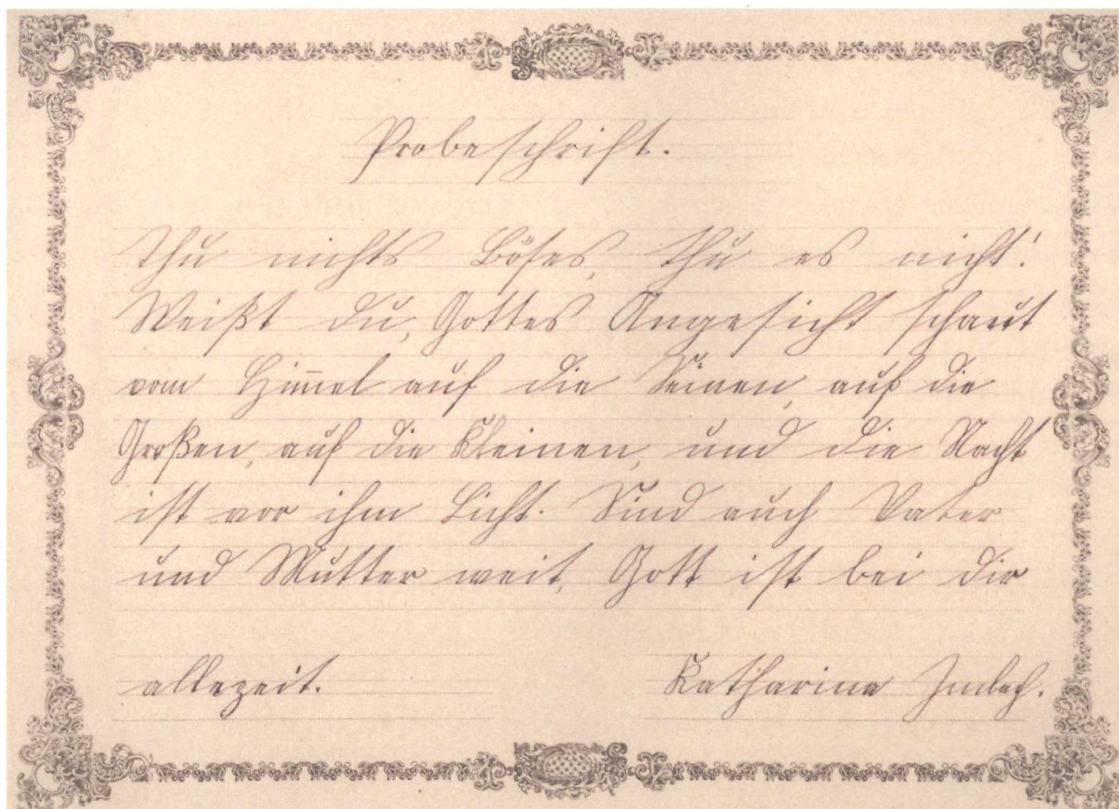 Probeschrift.
Thu nichts Böses, thu es nicht!
Weißt du, Gottes Angesicht schaut
vom Him̄el auf die Seinen, auf die
Großen, auf die Kleinen, und die Nacht
ist vor ihm Licht. Sind auch Vater
und Mutter weit, Gott ist bei dir
allezeit. Katharina Imbach.